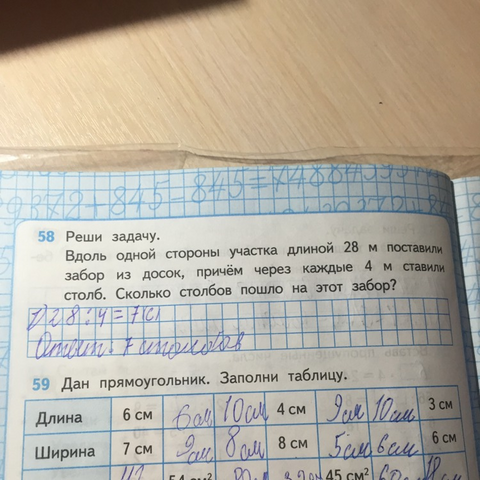 9372+845-845=74884
58 Реши задачу.
Вдоль одной стороны участка длиной 28 м поставили
забор из досок, причём через каждые 4 м ставили
столб. Сколько столбов пошло на этот забор?
1) 28:4=7(с)
Ответ: 7 столбов
59 Дан прямоугольник. Заполни таблицу.
Длина 6 см 6см 10см 4 см 9см 10см 3 см
Ширина 7 см 9см 8см 8 см 5см 6см 6 см
54 см² 45 см²